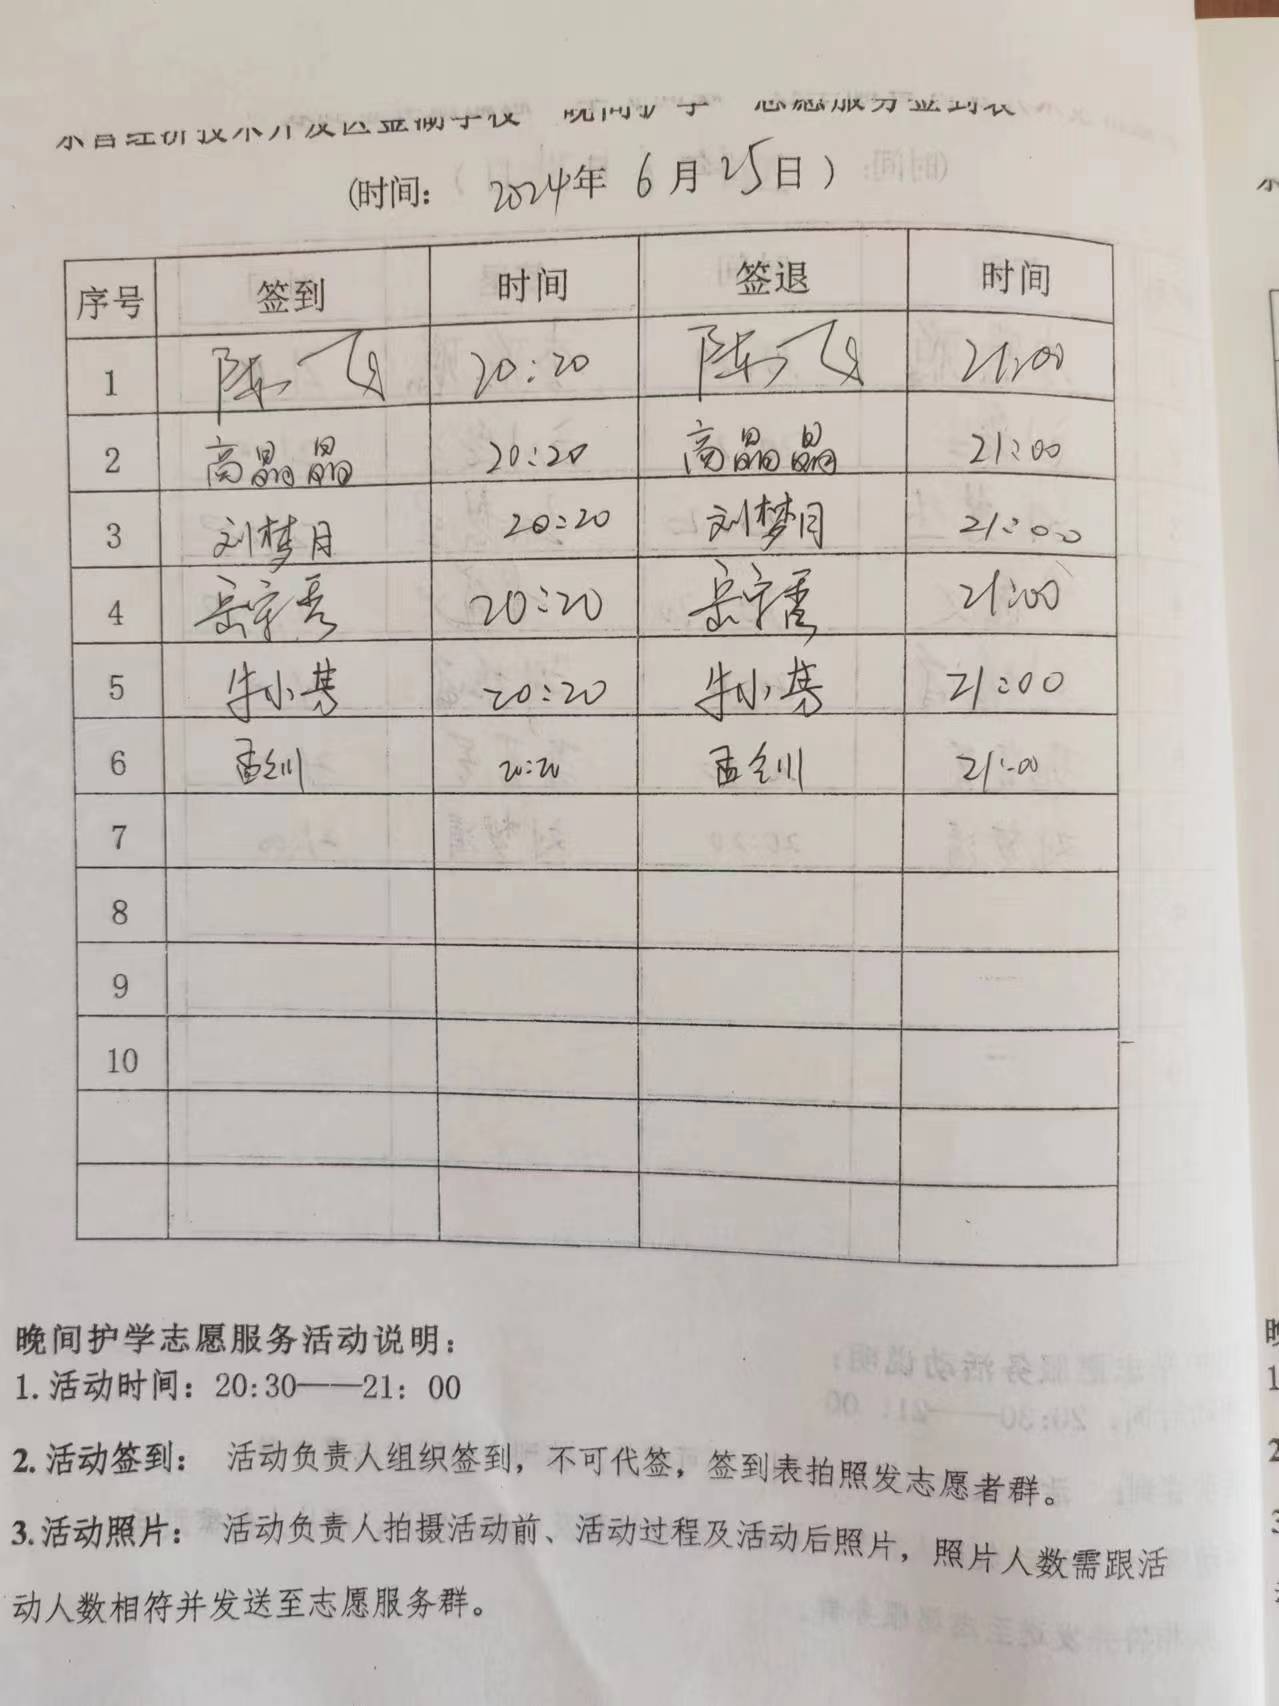 东营经济技术开发区金湖学校“晚间护学”志愿服务签到表
(时间: 2024年 6月25日)
序号 签到 时间 签退 时间
1 陈飞 20:20 陈飞 21:00
2 高晶晶 20:20 高晶晶 21:00
3 刘梦月 20:20 刘梦月 21:00
4 岳宗秀 20:20 岳宗秀 21:00
5 牛小芳 20:20 牛小芳 21:00
6 孟钊 20:20 孟钊 21:00
7
8
9
10
晚间护学志愿服务活动说明:
1.活动时间:20:30——21:00
2.活动签到: 活动负责人组织签到,不可代签,签到表拍照发志愿者群。
3.活动照片: 活动负责人拍摄活动前、活动过程及活动后照片,照片人数需跟活
动人数相符并发送至志愿服务群。